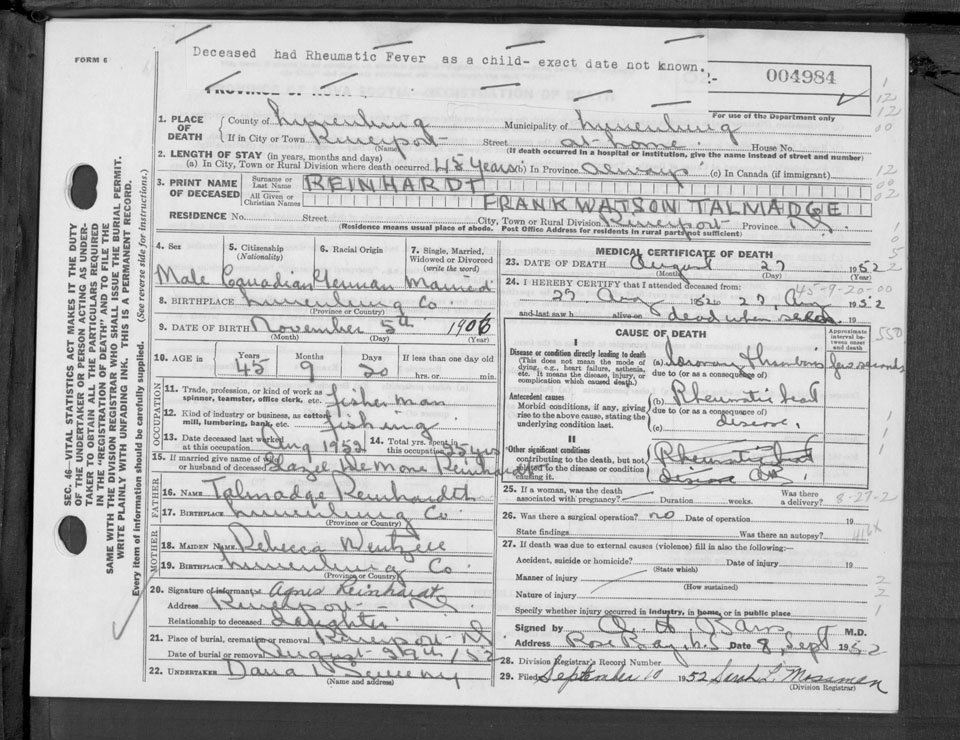 Deceased had Rheumatic Fever as a child- exact date not known.
FORM 6
004984
For use of the Department only
1. PLACE OF DEATH
County of Lunenburg Municipality of Lunenburg
If in City or Town Riverport Street at home House No.
(Name) (If death occurred in a hospital or institution, give the name instead of street and number)
2. LENGTH OF STAY (in years, months and days)
(a) In City, Town or Rural Division where death occurred 45 years (b) In Province always (c) In Canada (if immigrant)
3. PRINT NAME OF DECEASED
Surname or Last Name REINHARDT
All Given or Christian Names FRANK WATSON TALMADGE
RESIDENCE No. Street City, Town or Rural Division Riverport Province N.S.
(Residence means usual place of abode. Post Office Address for residents in rural parts not sufficient)
4. Sex 5. Citizenship (Nationality) 6. Racial Origin 7. Single, Married, Widowed or Divorced (write the word)
Male Canadian German Married
8. BIRTHPLACE Lunenburg Co.
(Province or Country)
9. DATE OF BIRTH November 5th 1906
(Month) (Day) (Year)
10. AGE in Years Months Days If less than one day old
45 9 20 hrs. or min.
OCCUPATION
11. Trade, profession, or kind of work as spinner, teamster, office clerk, etc. fisherman
12. Kind of industry or business, as cotton mill, lumbering, bank, etc. fishing
13. Date deceased last worked at this occupation Aug 1952 14. Total yrs. spent in this occupation 25 yrs
15. If married give name of wife or husband of deceased Hazel DeMone Reinhardt
FATHER
16. NAME Talmadge Reinhardt
17. BIRTHPLACE Lunenburg Co.
(Province or Country)
MOTHER
18. MAIDEN NAME Rebecca Wentzell
19. BIRTHPLACE Lunenburg Co.
(Province or Country)
20. Signature of informant Agnes Reinhardt
Address Riverport N.S.
Relationship to deceased Daughter
21. Place of burial, cremation or removal Riverport N.S.
Date of burial or removal August 29th / 52
22. UNDERTAKER Dana L Sweeny
(Name and address)
MEDICAL CERTIFICATE OF DEATH
23. DATE OF DEATH August 27 1952
(Month) (Day) (Year)
24. I HEREBY CERTIFY that I attended deceased from:
45-9-20-00
27 Aug 1952 to 27 Aug 1952
and last saw h alive on dead when seen 19
CAUSE OF DEATH
Approximate interval between onset and death
I
Disease or condition directly leading to death
(This does not mean the mode of dying, e.g., heart failure, asthenia, etc. It means the disease, injury, or complication which caused death.)
(a) Coronary thrombosis few seconds
due to (or as a consequence of)
Antecedent causes
Morbid conditions, if any, giving rise to the above cause, stating the underlying condition last.
(b) Rheumatic heart
due to (or as a consequence of)
(c) disease.
II
Other significant conditions
contributing to the death, but not related to the disease or condition causing it.
Rheumatic heart
disease
25. If a woman, was the death associated with pregnancy? Duration weeks. Was there a delivery?
8-27-2
26. Was there a surgical operation? no Date of operation 19
State findings Was there an autopsy?
416X
27. If death was due to external causes (violence) fill in also the following:-
Accident, suicide or homicide? Date of injury 19
(State which)
Manner of injury
(How sustained)
Nature of injury
Specify whether injury occurred in industry, in home, or in public place
Signed by M.D.
Address Rose Bay N.S. Date 8, Sept 1952
28. Division Registrar's Record Number
29. Filed September 10 1952 Sarah L. Mossman
(Division Registrar)
SEC. 46- VITAL STATISTICS ACT MAKES IT THE DUTY
OF THE UNDERTAKER OR PERSON ACTING AS UNDER-
TAKER TO OBTAIN ALL THE PARTICULARS REQUIRED
IN THE "REGISTRATION OF DEATH" AND TO FILE THE
SAME WITH THE DIVISION REGISTRAR WHO SHALL ISSUE THE BURIAL PERMIT.
WRITE PLAINLY WITH UNFADING INK. THIS IS A PERMANENT RECORD.
Every item of information should be carefully supplied. (See reverse side for instructions.)